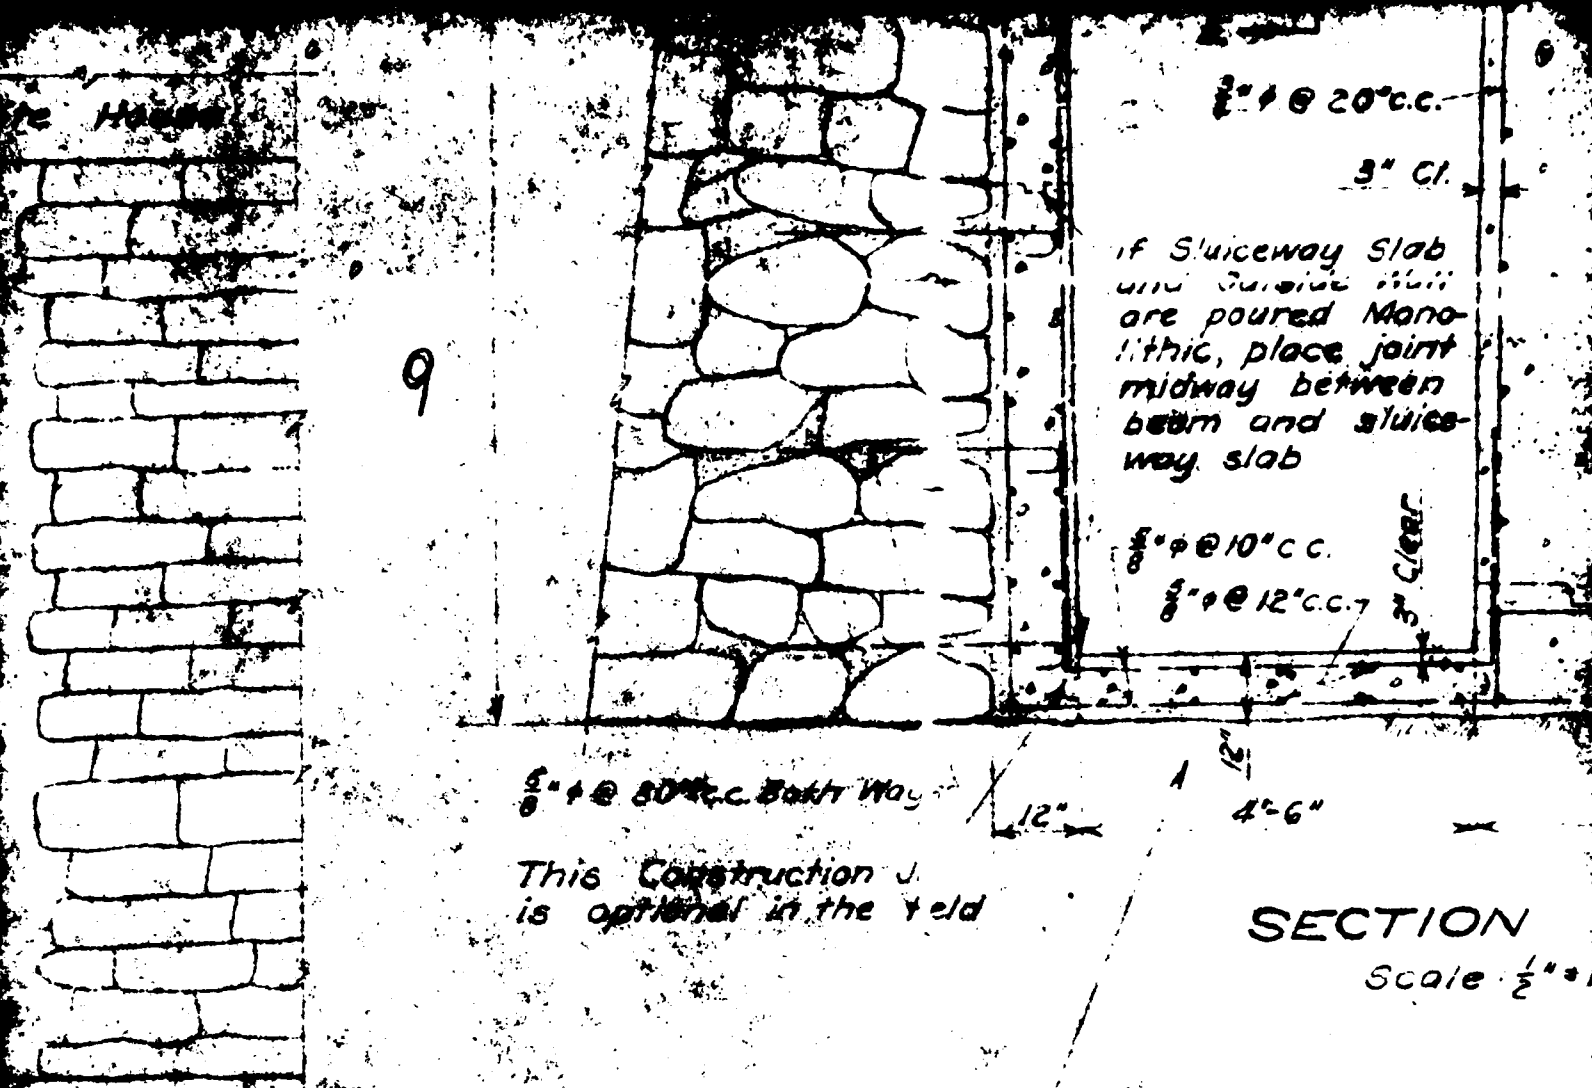 " φ @ 20" c.c.
3" Cl.
If Sluiceway Slab
and Outside Wall
are poured Mono-
lithic, place joint
midway between
beam and sluice-
way slab
9
" φ @ 10" c c.
5/8" φ @ 12" c.c.
3" Clear
12"
5/8" φ @ c.c. Both Way
12"
4'-6"
This Construction J
is optional in the field
SECTION
Scale 1/2" =